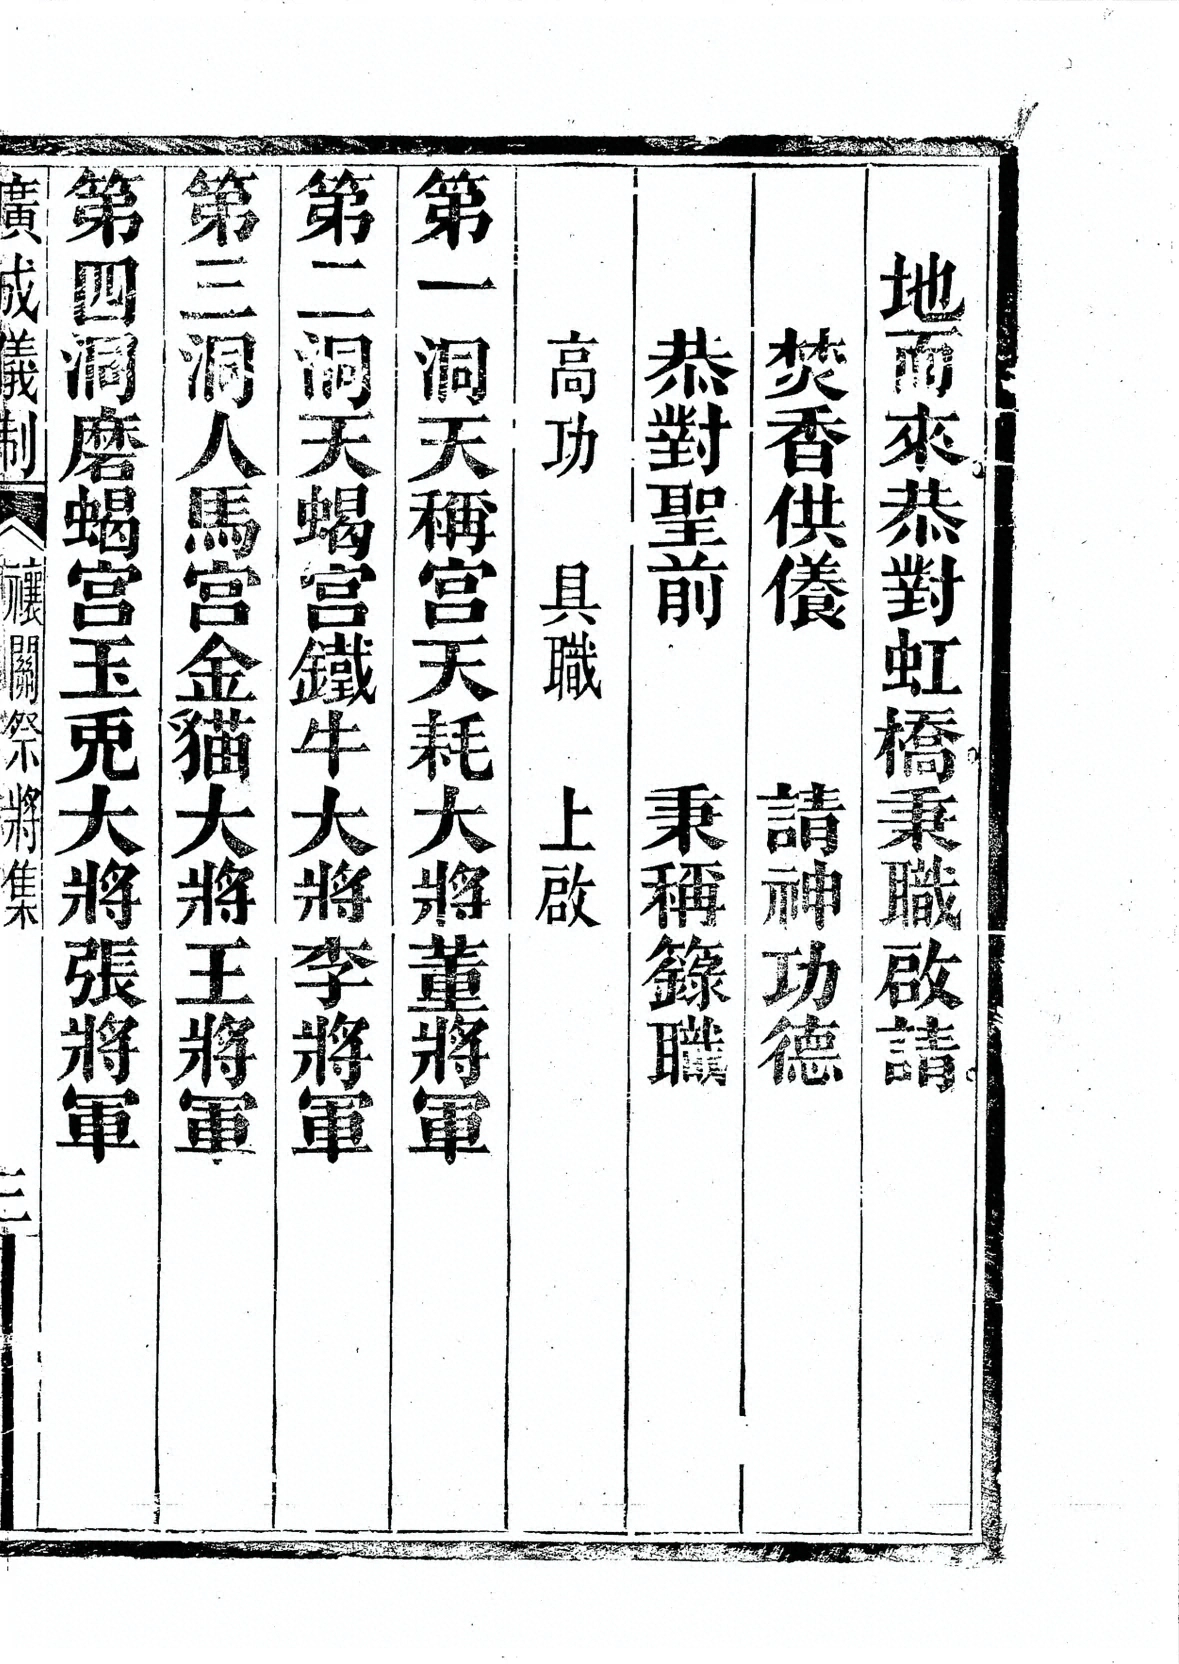 地而來恭對虹橋秉職啟請
焚香供養 請神功德
恭對聖前 秉稱籙職
高功 具職 上啟
第一洞天稱宮天耗大將董將軍
第二洞天蝎宮鐵牛大將李將軍
第三洞人馬宮金貓大將王將軍
第四洞磨蝎宮玉兎大將張將軍
廣成儀制 禳關祭將集 三